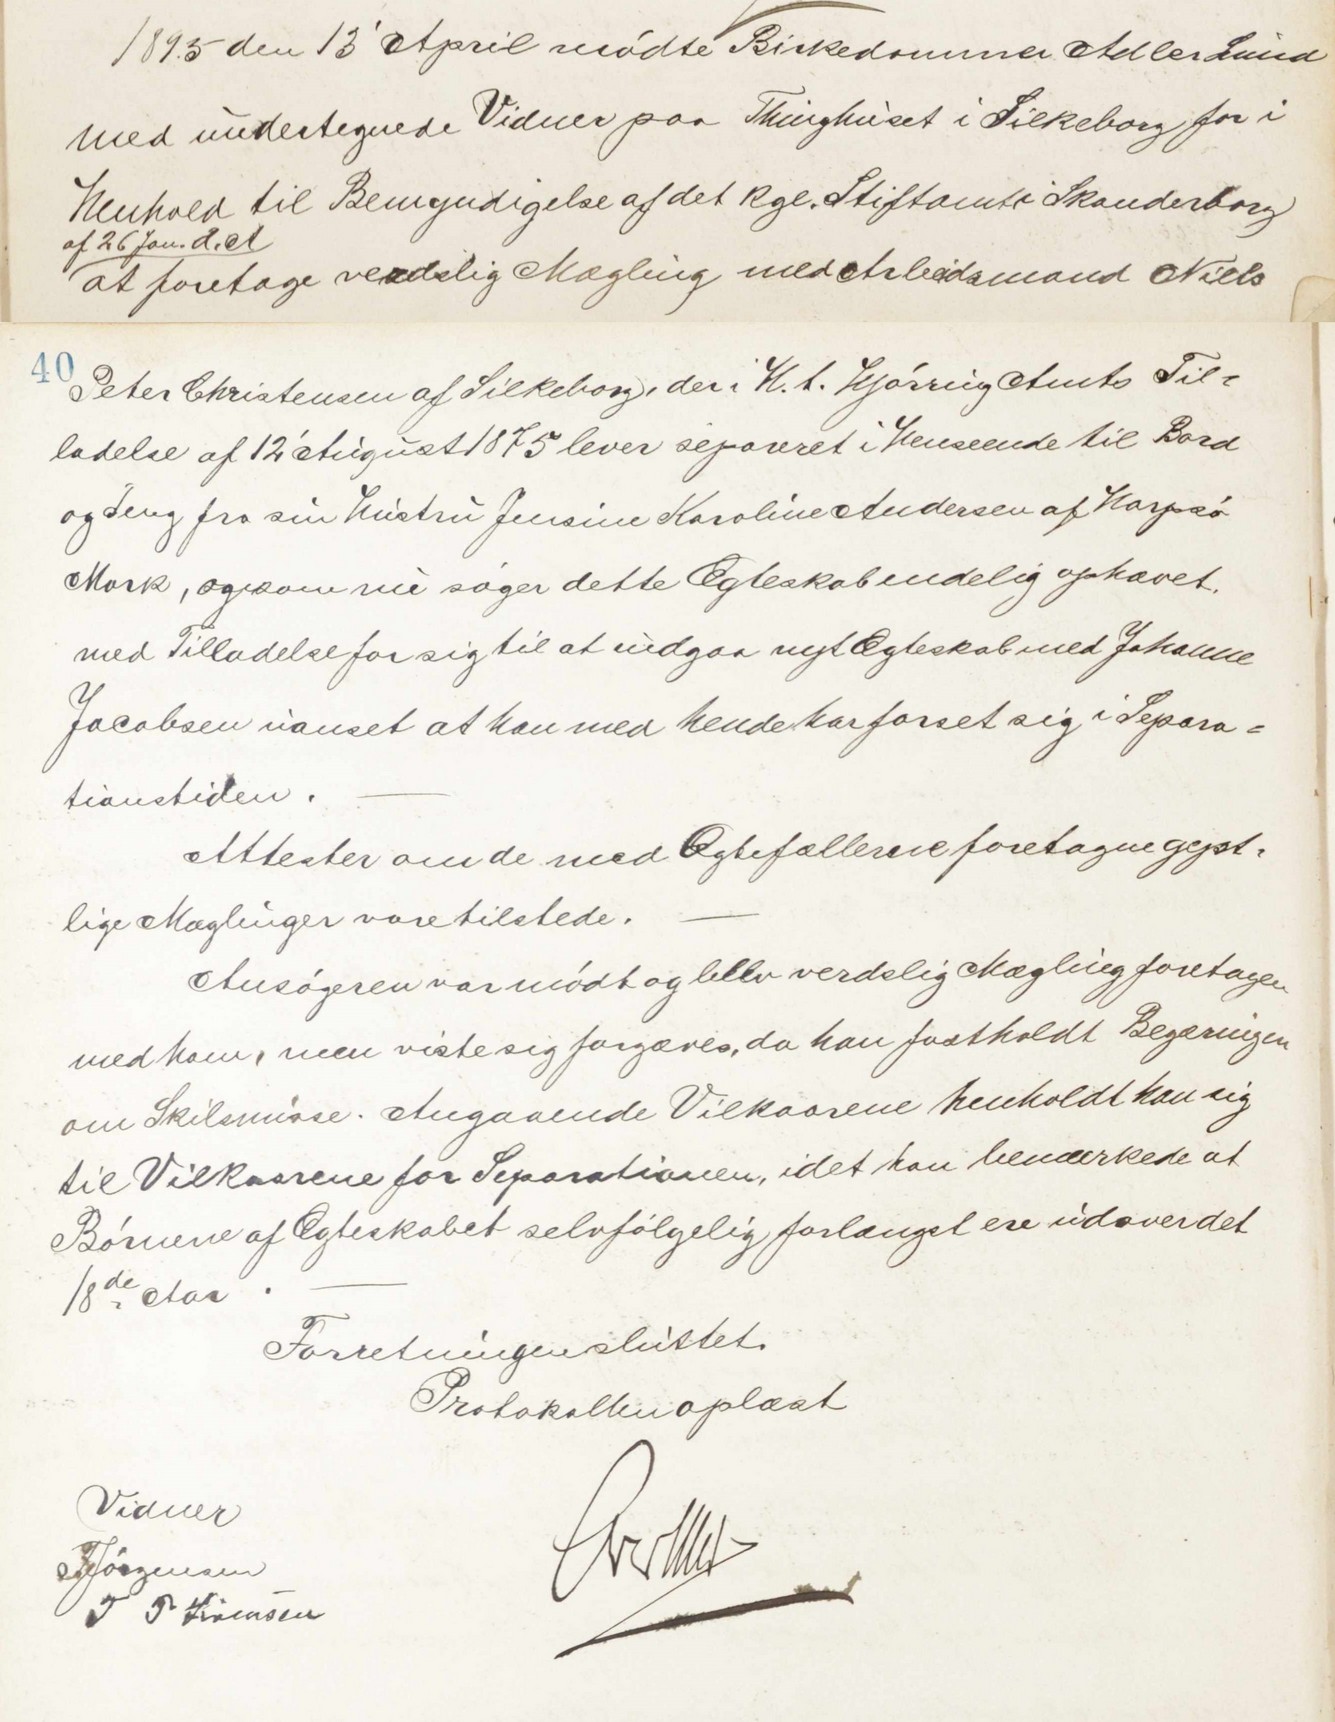 1895 den 13' April mødte Birkedommer Adler Lund
med undertegnede Vidner paa Thinghuset i Silkeborg for i
Henhold til Bemyndigelse af det kgl. Stiftamt i Skanderborg
af 26 Jan. d. A
at foretage verdslig Mægling med Arbeidsmand Niels
40
Peter Christensen af Silkeborg, der i H. t. Hjörring Amts Til=
ladelse af 12' August 1875 lever separeret i Henseende til Bord
og Seng fra sin Hustru Jensine Karoline Andersen af Harpsø
Mark, og som nu søger dette Egteskab endelig ophævet,
med Tilladelse for sig til at indgaa nyt Egteskab med Johanne
Jacobsen uanset at han med hende har forset sig i Separa=
tionstiden. —
Attester om de med Egtefællerne foretagne gejst=
lige Mæglinger vare tilstede. —
Ansøgeren var mødt og blev verdslig Mægling foretagen
med ham, men viste sig forgæves, da han fastholdt Begæringen
om Skilsmisse. Angaaende Vilkaarene henholdt han sig
til Vilkaarene for Separationen, idet han bemærkede at
Børnene af Egteskabet selvfølgelig forlængst ere udover det
18de Aar. —
Forretningen sluttet.
Protokollen oplæst
Vidner
Jörgensen